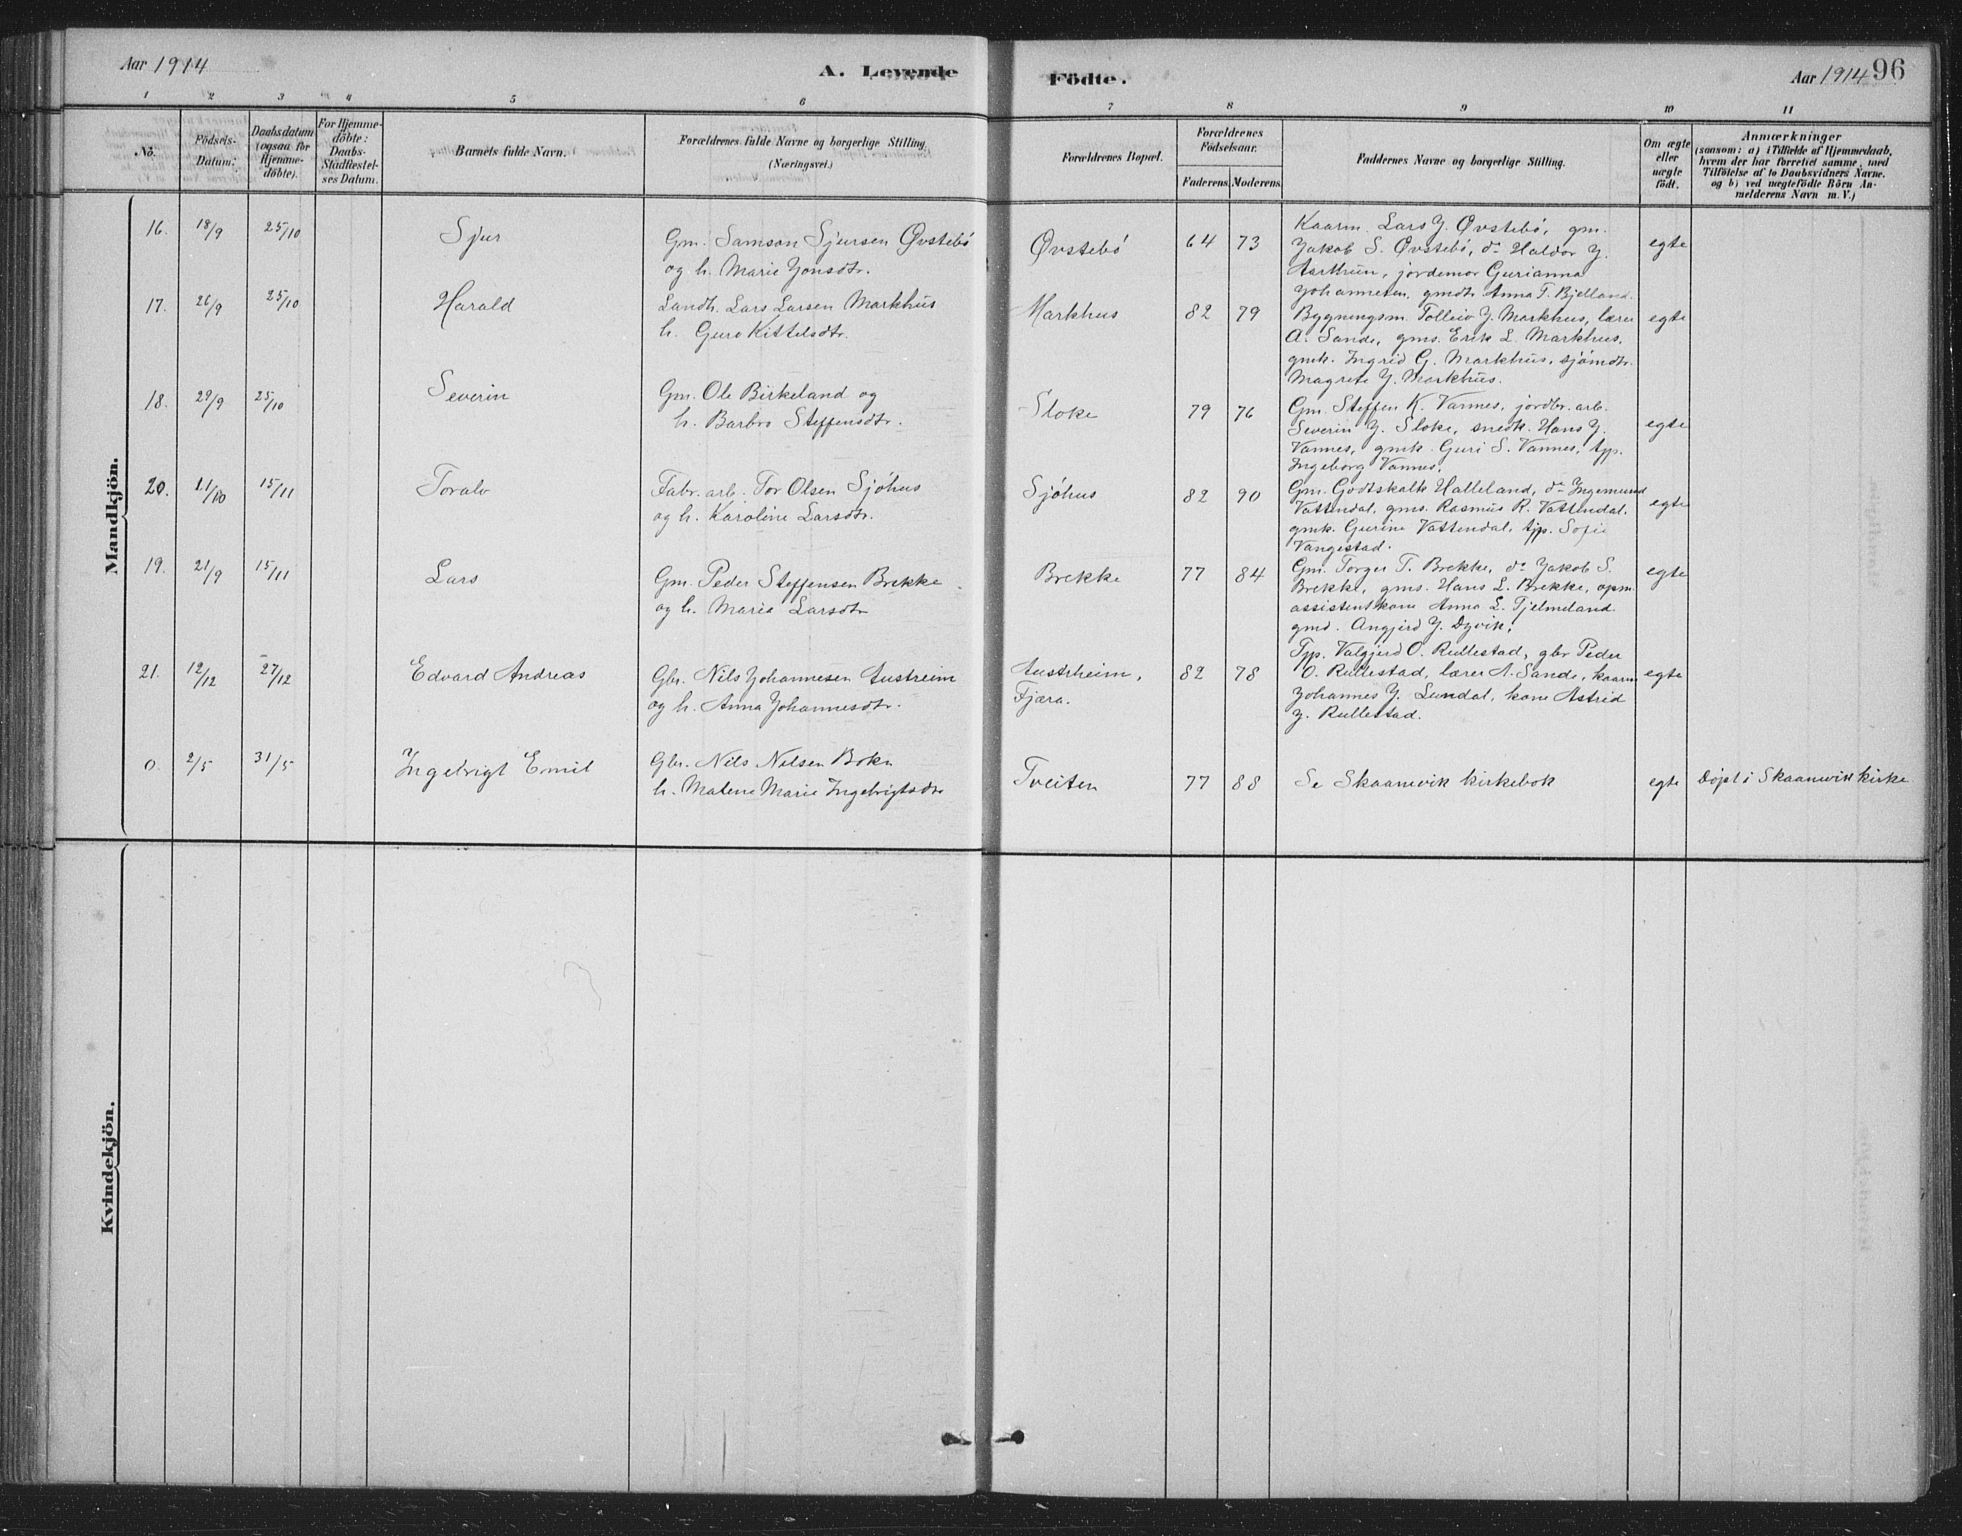 Aar 1914
A. Levende Födte.
Aar 1914 96
1 2 3 4 5 6 7 8 9 10 11
No.
Födsels-
Datum.
Daabsdatum
(ogsaa for
Hjemme-
döbte).
For Hjemme-
döbte:
Daabs-
Stadfæstel-
ses Datum.
Barnets fulde Navn.
Forældrenes fulde Navne og borgerlige Stilling
(Næringsvei.)
Forældrenes Bopæl.
Forældrenes
Födselsaar.
Faderens Moderens
Faddernes Navne og borgerlige Stilling.
Om ægte
eller
uægte
födt.
Anmærkninger
(saasom: a) i Tilfælde af Hjemmedaab,
hvem der har forrettet samme, med
Tilföielse af to Daabsvidners Navne.
og b) ved uægtefödte Börn An-
melderens Navn m. V.)
Mandkjön.
16. 18/9 25/10 Sjur
Gm. Samson Sjursen Øvstebö
og h. Marie Jonsdtr.
Øvstebö 64 73
Kaarm. Lars J. Øvstebö, gm.
Jakob S. Øvstebö, do Haldor J.
Aarthun, jordemor Gurianna
Johannesen, gmdtr. Anna T. Bjelland.
egte
17. 26/9 25/10 Harald
Landh. Lars Larsen Markhus
h. Guro Kittelsdtr.
Markhus 82 79
Bygningsm. Tolleiv J. Markhus, lærer
A. Sande, gms. Erik L. Markhus,
gmk. Ingrid G. Markhus, sjömdtr.
Magrete J. Markhus.
egte
18. 29/9 25/10 Severin
Gm. Ole Birkeland og
h. Barbro Steffensdtr.
Sloke 79 76
Gm. Steffen K. Vannes, jordbr. arb.
Severin J. Sloke, snedk. Hans J.
Vannes, gmk. Guri S. Vannes, tjp.
Ingeborg Vannes.
egte
20. 11/10 15/11 Toralv
Fabr. arb. Tor Olsen Sjöhus
og h. Karoline Larsdtr.
Sjöhus 82 90
Gm. Godtskalk Halleland, do Ingemund
Vattendal, gms. Rasmus R. Vattendal,
gmk. Gurine Vattendal, tjp. Sofie
Vangestad.
egte
19. 21/9 15/11 Lars
Gm. Peder Steffensen Brekke
og h. Marie Larsdtr
Brekke 77 84
Gm. Torger T. Brekke, do Jakob S.
Brekke, gms. Hans L. Brekke, opm.
assistentkone Anna L. Tjelmeland
gmd. Angjerd J. Dyvik.
egte
21. 12/12 27/12 Edvard Andreas
Gbr. Nils Johannesen Austreim
og h. Anna Johannesdtr.
Austrheim,
Fjæra.
82 78
Tjp. Valgjerd O. Rullestad, gbr Peder
O. Rullestad, lærer A. Sande, kaarm
Johannes J. Lundal, kone Astrid
J. Rullestad.
egte
0. 2/5 31/5 Ingebrigt Emil
Gbr. Nils Nelsen Bokn
h. Malene Marie Ingebrigtsdtr
Tveiten 77 88
Se Skaanevik kirkebok
egte
Döpt i Skaanevik kirke
Kvindekjön.